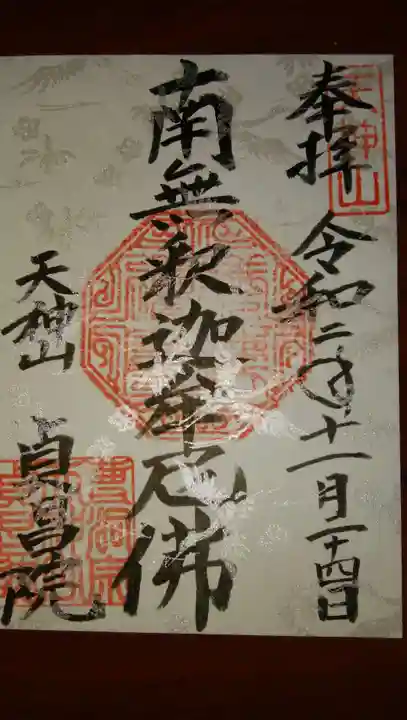 奉拝 令和二年十一月二十四日
南無釈迦牟尼佛
天神山 貞昌院
天神山
曹洞宗